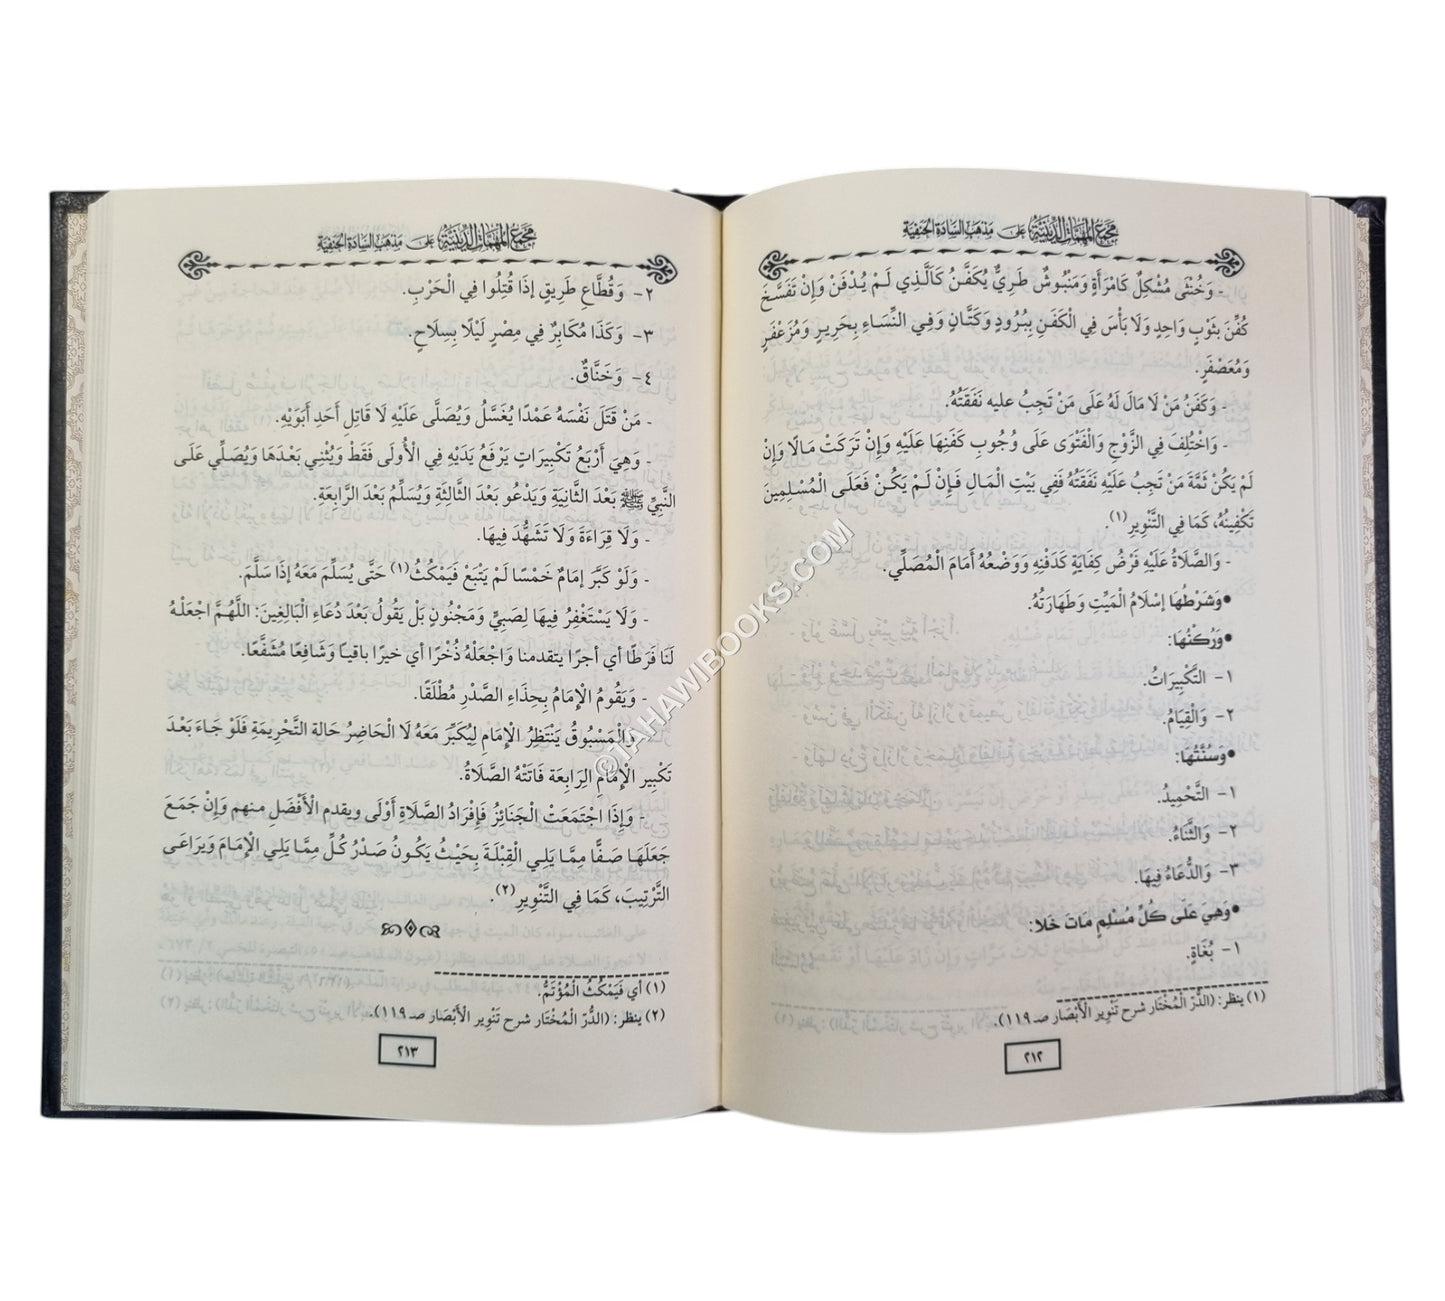 مجمع المهمات الدينية على مذهب السادة الحنفية
- وَخُنْثَى مُشْكِلٌ كَامْرَأَةٍ وَمَنْبُوشٌ طَرِيٌّ يُكَفَّنُ كَالَّذِي لَمْ يُدْفَنْ وَإِنْ تَفَسَّخَ
كُفِّنَ بِثَوْبٍ وَاحِدٍ وَلَا بَأْسَ فِي الْكَفَنِ بِبُرُودٍ وَكَتَّانٍ وَفِي النِّسَاءِ بِحَرِيرٍ وَمُزَعْفَرٍ
وَمُعَصْفَرٍ.
- وَكَفَنُ مَنْ لَا مَالَ لَهُ عَلَى مَنْ تَجِبُ عليه نَفَقَتُهُ.
- وَاخْتُلِفَ فِي الزَّوْجِ وَالْفَتْوَى عَلَى وُجُوبِ كَفَنِهَا عَلَيْهِ وَإِنْ تَرَكَتْ مَالًا وَإِنْ
لَمْ يَكُنْ ثَمَّةَ مَنْ تَجِبُ عَلَيْهِ نَفَقَتُهُ فَفِي بَيْتِ الْمَالِ فَإِنْ لَمْ يَكُنْ فَعَلَى الْمُسْلِمِينَ
تَكْفِينُهُ، كَمَا فِي التَّنْوِيرِ(١).
- وَالصَّلَاةُ عَلَيْهِ فَرْضُ كِفَايَةٍ كَدَفْنِهِ وَوَضْعُهُ أَمَامَ الْمُصَلِّي.
•وَشَرْطُهَا إسْلَامُ الْمَيِّتِ وَطَهَارَتُهُ.
•وَرُكْنُهَا:
١- التَّكْبِيرَاتُ.
٢- وَالْقِيَامُ.
•وَسُنَّتُهَا:
١- التَّحْمِيدُ.
٢- وَالثَّنَاءُ.
٣- وَالدُّعَاءُ فِيهَا.
•وَهِيَ عَلَى كُلِّ مُسْلِمٍ مَاتَ خَلَا:
١- بُغَاةٍ.
(١) ينظر: (الدُّرّ الْمُخْتَار شرح تَنْوِير الْأَبْصَار صـ١١٩).
٢١٢
مجمع المهمات الدينية على مذهب السادة الحنفية
٢- وَقُطَّاعِ طَرِيقٍ إذَا قُتِلُوا فِي الْحَرْبِ.
٣- وَكَذَا مُكَابِرٌ فِي مِصْرٍ لَيْلًا بِسِلَاحٍ.
٤- وَخَنَّاقٌ.
- مَنْ قَتَلَ نَفْسَهُ عَمْدًا يُغَسَّلُ وَيُصَلَّى عَلَيْهِ لَا قَاتِلِ أَحَدِ أَبَوَيْهِ.
- وَهِيَ أَرْبَعُ تَكْبِيرَاتٍ يَرْفَعُ يَدَيْهِ فِي الْأُولَى فَقَطْ وَيُثْنِي بَعْدَهَا وَيُصَلِّي عَلَى
النَّبِيِّ ﷺ بَعْدَ الثَّانِيَةِ وَيَدْعُو بَعْدَ الثَّالِثَةِ وَيُسَلِّمُ بَعْدَ الرَّابِعَةِ.
- وَلَا قِرَاءَةَ وَلَا تَشَهُّدَ فِيهَا.
- وَلَوْ كَبَّرَ إمَامٌ خَمْسًا لَمْ يَتْبَعْ فَيَمْكُثُ(١) حَتَّى يُسَلِّمَ مَعَهُ إذَا سَلَّمَ.
- وَلَا يَسْتَغْفِرُ فِيهَا لِصَبِيٍّ وَمَجْنُونٍ بَلْ يَقُولُ بَعْدَ دُعَاءِ الْبَالِغِينَ: اللَّهُمَّ اجْعَلْهُ
لَنَا فَرَطًا أي أجرًا يتقدمنا وَاجْعَلْهُ ذُخْرًا أي خيرًا باقيًا وَشَافِعًا مُشَفَّعًا.
- وَيَقُومُ الْإِمَامُ بِحِذَاءِ الصَّدْرِ مُطْلَقًا.
- وَالْمَسْبُوقُ يَنْتَظِرُ الْإِمَامِ لِيُكَبِّرَ مَعَهُ لَا الْحَاضِرُ حَالَةِ التَّحْرِيمَةِ فَلَوْ جَاءَ بَعْدَ
تَكْبِيرِ الْإِمَامِ الرَابِعَة فَاتَتْهُ الصَّلَاةُ.
- وَإِذَا اجْتَمَعَتْ الْجَنَائِزُ فَإِفْرَادُ الصَّلَاةِ أَوْلَى ويقدم الْأَفْضَل منهم وَإِنْ جَمَعَ
جَعَلَهَا صَفًّا مِمَّا يَلِي الْقِبْلَةَ بِحَيْثُ يَكُونُ صَدْرُ كُلٍّ مِمَّا يَلِي الْإِمَامَ وَيَرَاعَى
التَّرْتِيبَ، كَمَا فِي التَّنْوِيرِ (٢).
(١) أي فَيَمْكُثُ الْمُؤْتَمُّ.
(٢) ينظر: (الدُّرّ الْمُخْتَار شرح تَنْوِير الْأَبْصَار صـ١١٩).
٢١٣
©TAHAWIBOOKS.COM